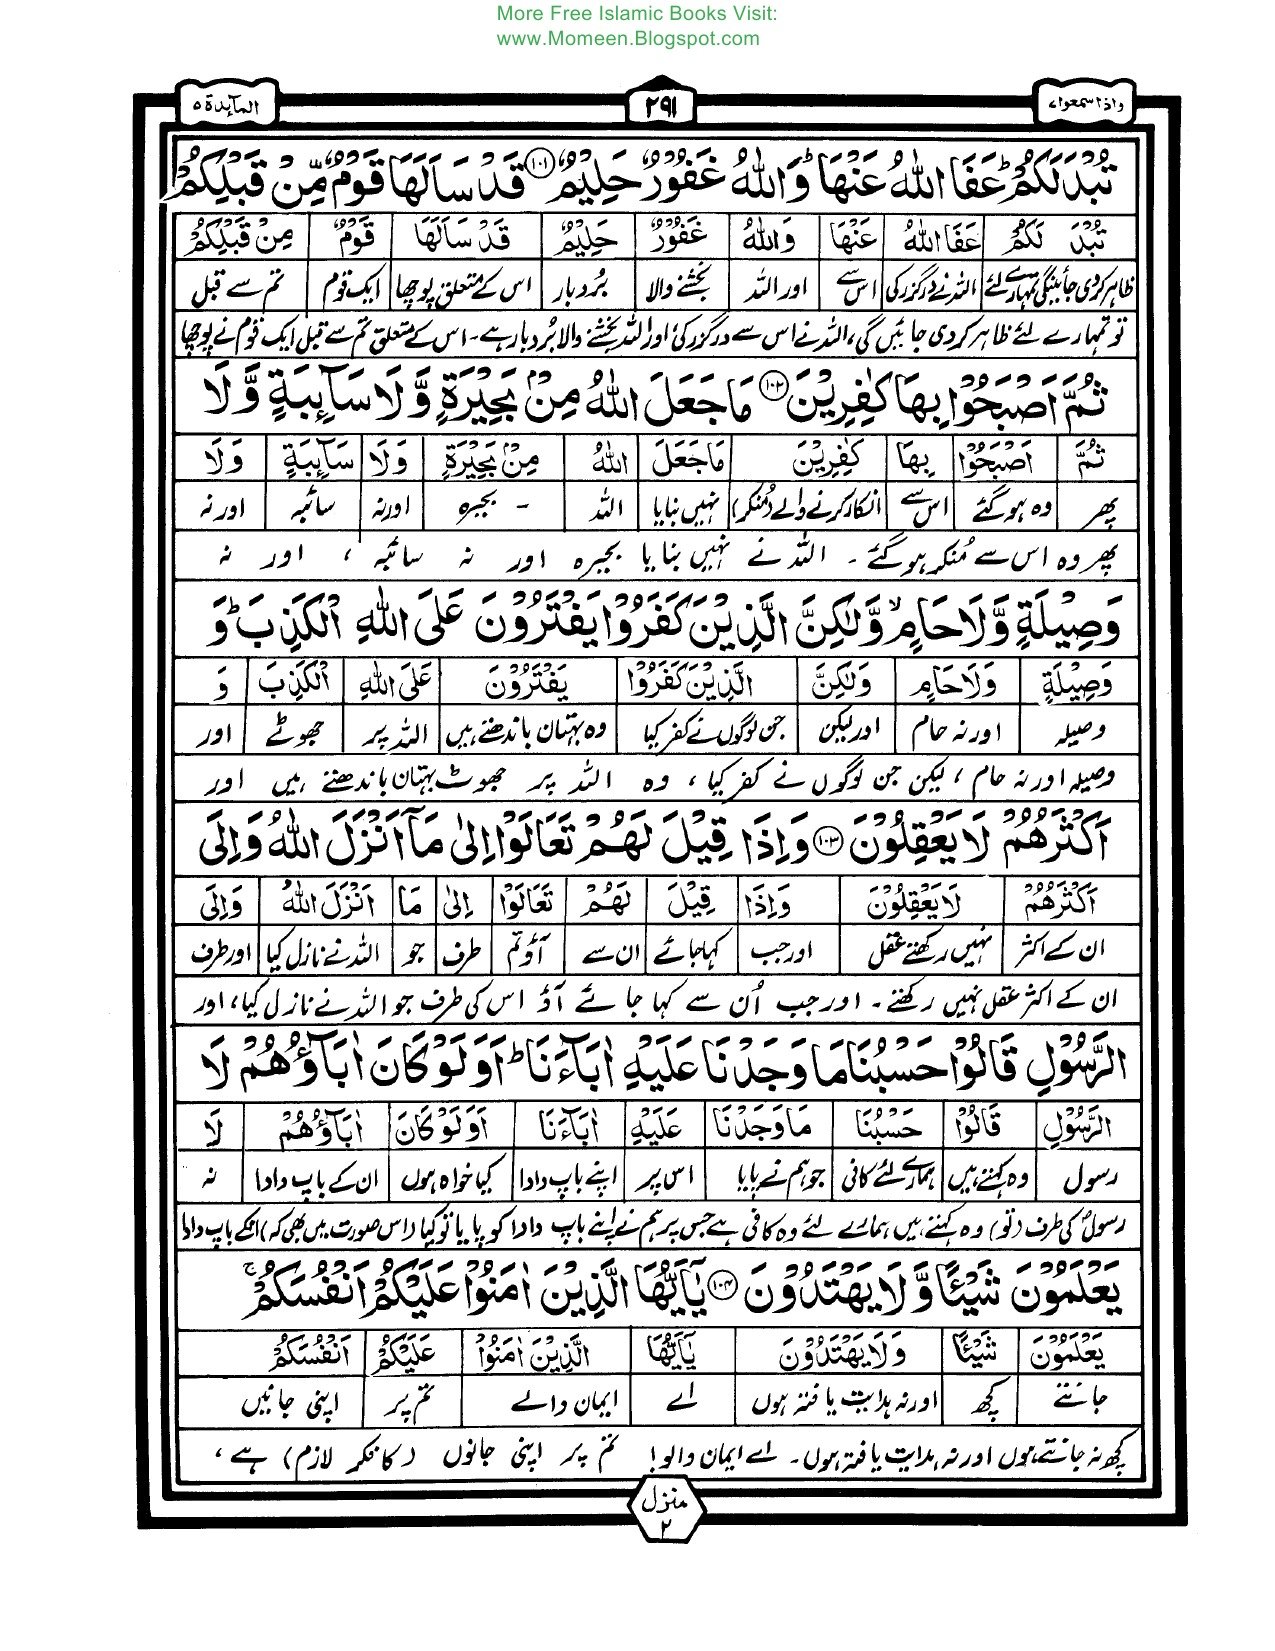 More Free Islamic Books Visit:
www.Momeen.Blogspot.com
واذا سمعوا ۷
۲۹۱
المآىِٕدة ۵
تُبْدَ لَكُمْ ؕ عَفَا اللّٰهُ عَنْهَا ؕ وَاللّٰهُ غَفُوْرٌ حَلِیْمٌ ۱۰۱ قَدْ سَاَلَهَا قَوْمٌ مِّنْ قَبْلِكُمْ
تُبْدَ لَكُمْ عَفَا اللّٰهُ عَنْهَا وَاللّٰهُ غَفُوْرٌ حَلِیْمٌ قَدْ سَاَلَهَا قَوْمٌ مِنْ قَبْلِكُمْ
ظاہر کردی جائینگی تمہارے لئے اللہ نے درگزر کی اس سے اور اللہ بخشنے والا بُردبار اس کے متعلق پوچھا ایک قوم تم سے قبل
تو تمہارے لئے ظاہر کردی جائیں گی، اللہ نے اس سے درگزر کی، اور اللہ بخشنے والا بُردبار ہے۔ اس کے متعلق تم سے قبل ایک قوم نے پوچھا
ثُمَّ اَصْبَحُوْا بِهَا كٰفِرِیْنَ ۱۰۲ مَا جَعَلَ اللّٰهُ مِنْۢ بَحِیْرَةٍ وَّلَا سَآىِٕبَةٍ وَّلَا
ثُمَّ اَصْبَحُوْا بِهَا كٰفِرِیْنَ مَا جَعَلَ اللّٰهُ مِنْۢ بَحِیْرَةٍ وَلَا سَآىِٕبَةٍ وَلَا
پھر وہ ہو گئے اس سے انکار کرنے والے (منکر) نہیں بنایا اللہ - بحیرہ اور نہ سائبہ اور نہ
پھر وہ اس سے مُنکر ہو گئے۔ اللہ نے نہیں بنایا بحیرہ اور نہ سائبہ، اور نہ
وَصِیْلَةٍ وَّلَا حَامٍ ۙ وَّلٰكِنَّ الَّذِیْنَ كَفَرُوْا یَفْتَرُوْنَ عَلَى اللّٰهِ الْكَذِبَ ؕ وَ
وَصِیْلَةٍ وَلَا حَامٍ وَلٰكِنَّ الَّذِیْنَ كَفَرُوْا یَفْتَرُوْنَ عَلَى اللّٰهِ الْكَذِبَ وَ
وصیلہ اور نہ حام اور لیکن جن لوگوں نے کفر کیا وہ بہتان باندھتے ہیں اللہ پر جھوٹے اور
وصیلہ اور نہ حام، لیکن جن لوگوں نے کفر کیا، وہ اللہ پر جھوٹ بہتان باندھتے ہیں اور
اَكْثَرُهُمْ لَا یَعْقِلُوْنَ ۱۰۳ وَاِذَا قِیْلَ لَهُمْ تَعَالَوْا اِلٰى مَاۤ اَنْزَلَ اللّٰهُ وَاِلَى
اَكْثَرُهُمْ لَا یَعْقِلُوْنَ وَاِذَا قِیْلَ لَهُمْ تَعَالَوْا اِلٰى مَا اَنْزَلَ اللّٰهُ وَاِلَى
ان کے اکثر نہیں رکھتے عقل اور جب کہا جائے ان سے آؤ تم طرف جو اللہ نے نازل کیا اور طرف
ان کے اکثر عقل نہیں رکھتے۔ اور جب اُن سے کہا جائے آؤ اس کی طرف جو اللہ نے نازل کیا، اور
الرَّسُوْلِ قَالُوْا حَسْبُنَا مَا وَجَدْنَا عَلَیْهِ اٰبَآءَنَا ؕ اَوَلَوْ كَانَ اٰبَآؤُهُمْ لَا
الرَّسُوْلِ قَالُوْا حَسْبُنَا مَا وَجَدْنَا عَلَیْهِ اٰبَآءَنَا اَوَلَوْ كَانَ اٰبَآؤُهُمْ لَا
رسول وہ کہتے ہیں ہمارے لئے کافی جو ہم نے پایا اس پر اپنے باپ دادا کیا خواہ ہوں ان کے باپ دادا نہ
رسولؐ کی طرف (تو) وہ کہتے ہیں ہمارے لئے وہ کافی ہے جس پر ہم نے اپنے باپ دادا کو پایا تو کیا (اس صورت میں بھی کہ) انکے باپ دادا
یَعْلَمُوْنَ شَیْـًٔا وَّلَا یَهْتَدُوْنَ ۱۰۴ یٰۤاَیُّهَا الَّذِیْنَ اٰمَنُوْا عَلَیْكُمْ اَنْفُسَكُمْ ۚ
یَعْلَمُوْنَ شَیْـًٔا وَلَا یَهْتَدُوْنَ یٰۤاَیُّهَا الَّذِیْنَ اٰمَنُوْا عَلَیْكُمْ اَنْفُسَكُمْ
جانتے کچھ اور نہ ہدایت یافتہ ہوں اے ایمان والے تم پر اپنی جانیں
کچھ نہ جانتے ہوں اور نہ ہدایت یافتہ ہوں۔ اے ایمان والو! تم پر اپنی جانوں (کا فکر لازم) ہے،
منزل
۲